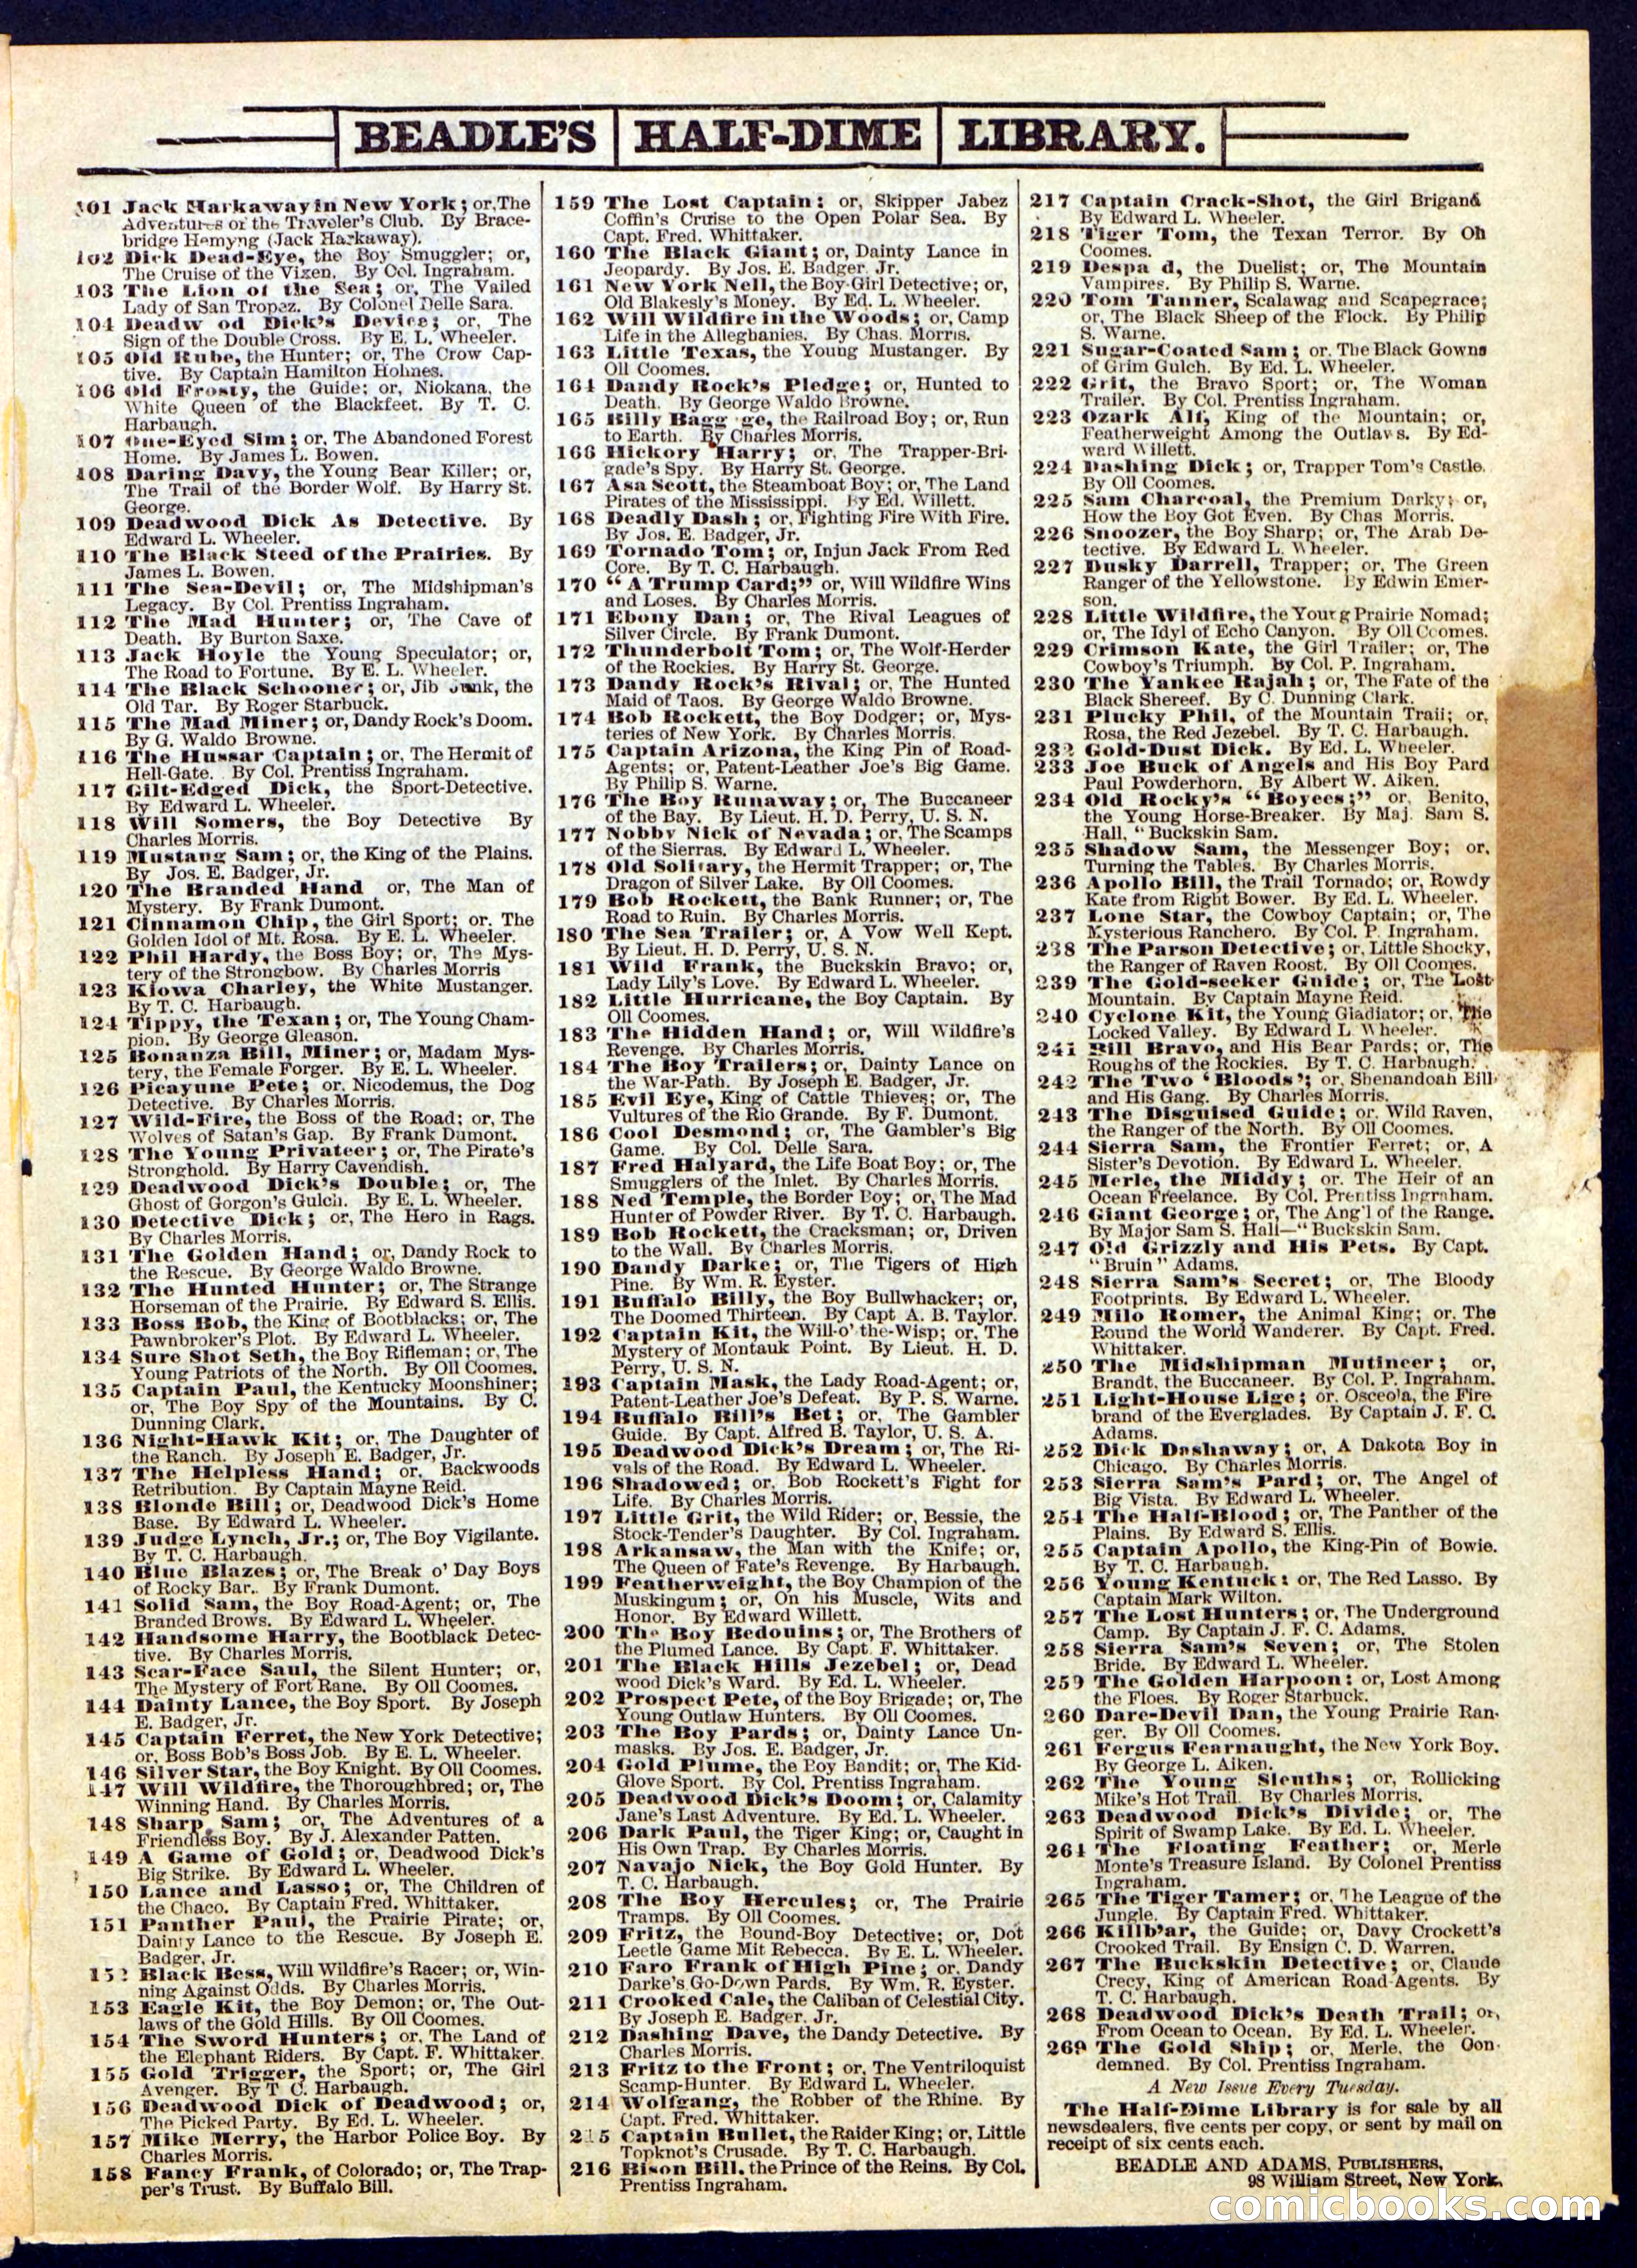 BEADLE'S HALF-DIME LIBRARY.
101 Jack Harkaway in New York; or, The
Adventures of the Traveler's Club. By Brace-
bridge Hemyng (Jack Harkaway).
102 Dick Dead-Eye, the Boy Smuggler; or,
The Cruise of the Vixen. By Col. Ingraham.
103 The Lion of the Sea; or, The Vailed
Lady of San Tropez. By Colonel Delle Sara.
104 Deadw od Dick's Device; or, The
Sign of the Double Cross. By E. L. Wheeler.
105 Old Rube, the Hunter; or, The Crow Cap-
tive. By Captain Hamilton Holmes.
106 Old Frosty, the Guide; or, Niokana, the
White Queen of the Blackfeet. By T. C.
Harbaugh.
107 One-Eyed Sim; or, The Abandoned Forest
Home. By James L. Bowen.
108 Daring Davy, the Young Bear Killer; or,
The Trail of the Border Wolf. By Harry St.
George.
109 Deadwood Dick As Detective. By
Edward L. Wheeler.
110 The Black Steed of the Prairies. By
James L. Bowen.
111 The Sea-Devil; or, The Midshipman's
Legacy. By Col. Prentiss Ingraham.
112 The Mad Hunter; or, The Cave of
Death. By Burton Saxe.
113 Jack Hoyle the Young Speculator; or,
The Road to Fortune. By E. L. Wheeler.
114 The Black Schooner; or, Jib Junk, the
Old Tar. By Roger Starbuck.
115 The Mad Miner; or, Dandy Rock's Doom.
By G. Waldo Browne.
116 The Hussar Captain; or, The Hermit of
Hell-Gate. By Col. Prentiss Ingraham.
117 Gilt-Edged Dick, the Sport-Detective.
By Edward L. Wheeler.
118 Will Somers, the Boy Detective By
Charles Morris.
119 Mustang Sam; or, the King of the Plains.
By Jos. E. Badger, Jr.
120 The Branded Hand or, The Man of
Mystery. By Frank Dumont.
121 Cinnamon Chip, the Girl Sport; or, The
Golden Idol of Mt. Rosa. By E. L. Wheeler.
122 Phil Hardy, the Boss Boy; or, The Mys-
tery of the Strongbow. By Charles Morris
123 Kiowa Charley, the White Mustanger.
By T. C. Harbaugh.
124 Tippy, the Texan; or, The Young Cham-
pion. By George Gleason.
125 Bonanza Bill, Miner; or, Madam Mys-
tery, the Female Forger. By E. L. Wheeler.
126 Picayune Pete; or, Nicodemus, the Dog
Detective. By Charles Morris.
127 Wild-Fire, the Boss of the Road; or, The
Wolves of Satan's Gap. By Frank Dumont.
128 The Young Privateer; or, The Pirate's
Stronghold. By Harry Cavendish.
129 Deadwood Dick's Double; or, The
Ghost of Gorgon's Gulch. By E. L. Wheeler.
130 Detective Dick; or, The Hero in Rags.
By Charles Morris.
131 The Golden Hand; or, Dandy Rock to
the Rescue. By George Waldo Browne.
132 The Hunted Hunter; or, The Strange
Horseman of the Prairie. By Edward S. Ellis.
133 Boss Bob, the King of Bootblacks; or, The
Pawnbroker's Plot. By Edward L. Wheeler.
134 Sure Shot Seth, the Boy Rifleman; or, The
Young Patriots of the North. By Oll Coomes.
135 Captain Paul, the Kentucky Moonshiner;
or, The Boy Spy of the Mountains. By C.
Dunning Clark.
136 Night-Hawk Kit; or, The Daughter of
the Ranch. By Joseph E. Badger, Jr.
137 The Helpless Hand; or, Backwoods
Retribution. By Captain Mayne Reid.
138 Blonde Bill; or, Deadwood Dick's Home
Base. By Edward L. Wheeler.
139 Judge Lynch, Jr.; or, The Boy Vigilante.
By T. C. Harbaugh.
140 Blue Blazes; or, The Break o' Day Boys
of Rocky Bar. By Frank Dumont.
141 Solid Sam, the Boy Road-Agent; or, The
Branded Brows. By Edward L. Wheeler.
142 Handsome Harry, the Bootblack Detec-
tive. By Charles Morris.
143 Scar-Face Saul, the Silent Hunter; or,
The Mystery of Fort Rane. By Oll Coomes.
144 Dainty Lance, the Boy Sport. By Joseph
E. Badger, Jr.
145 Captain Ferret, the New York Detective;
or, Boss Bob's Boss Job. By E. L. Wheeler.
146 Silver Star, the Boy Knight. By Oll Coomes.
147 Will Wildfire, the Thoroughbred; or, The
Winning Hand. By Charles Morris.
148 Sharp Sam; or, The Adventures of a
Friendless Boy. By J. Alexander Patten.
149 A Game of Gold; or, Deadwood Dick's
Big Strike. By Edward L. Wheeler.
150 Lance and Lasso; or, The Children of
the Chaco. By Captain Fred. Whittaker.
151 Panther Paul, the Prairie Pirate; or,
Dainty Lance to the Rescue. By Joseph E.
Badger, Jr.
152 Black Bess, Will Wildfire's Racer; or, Win-
ning Against Odds. By Charles Morris.
153 Eagle Kit, the Boy Demon; or, The Out-
laws of the Gold Hills. By Oll Coomes.
154 The Sword Hunters; or, The Land of
the Elephant Riders. By Capt. F. Whittaker.
155 Gold Trigger, the Sport; or, The Girl
Avenger. By T C. Harbaugh.
156 Deadwood Dick of Deadwood; or,
The Picked Party. By Ed. L. Wheeler.
157 Mike Merry, the Harbor Police Boy. By
Charles Morris.
158 Fancy Frank, of Colorado; or, The Trap-
per's Trust. By Buffalo Bill.
159 The Lost Captain; or, Skipper Jabez
Coffin's Cruise to the Open Polar Sea. By
Capt. Fred. Whittaker.
160 The Black Giant; or, Dainty Lance in
Jeopardy. By Jos. E. Badger, Jr.
161 New York Nell, the Boy-Girl Detective; or,
Old Blakesly's Money. By Ed. L. Wheeler.
162 Will Wildfire in the Woods; or, Camp
Life in the Alleghanies. By Chas. Morris.
163 Little Texas, the Young Mustanger. By
Oll Coomes.
164 Dandy Rock's Pledge; or, Hunted to
Death. By George Waldo Browne.
165 Billy Bagg ge, the Railroad Boy; or, Run
to Earth. By Charles Morris.
166 Hickory Harry; or, The Trapper-Bri-
gade's Spy. By Harry St. George.
167 Asa Scott, the Steamboat Boy; or, The Land
Pirates of the Mississippi. By Ed. Willett.
168 Deadly Dash; or, Fighting Fire With Fire.
By Jos. E. Badger, Jr.
169 Tornado Tom; or, Injun Jack From Red
Core. By T. C. Harbaugh.
170 "A Trump Card;" or, Will Wildfire Wins
and Loses. By Charles Morris.
171 Ebony Dan; or, The Rival Leagues of
Silver Circle. By Frank Dumont.
172 Thunderbolt Tom; or, The Wolf-Herder
of the Rockies. By Harry St. George.
173 Dandy Rock's Rival; or, The Hunted
Maid of Taos. By George Waldo Browne.
174 Bob Rockett, the Boy Dodger; or, Mys-
teries of New York. By Charles Morris.
175 Captain Arizona, the King Pin of Road-
Agents; or, Patent-Leather Joe's Big Game.
By Philip S. Warne.
176 The Boy Runaway; or, The Buccaneer
of the Bay. By Lieut. H. D. Perry, U. S. N.
177 Nobby Nick of Nevada; or, The Scamps
of the Sierras. By Edward L. Wheeler.
178 Old Solitary, the Hermit Trapper; or, The
Dragon of Silver Lake. By Oll Coomes.
179 Bob Rockett, the Bank Runner; or, The
Road to Ruin. By Charles Morris.
180 The Sea Trailer; or, A Vow Well Kept.
By Lieut. H. D. Perry, U. S. N.
181 Wild Frank, the Buckskin Bravo; or,
Lady Lily's Love. By Edward L. Wheeler.
182 Little Hurricane, the Boy Captain. By
Oll Coomes.
183 The Hidden Hand; or, Will Wildfire's
Revenge. By Charles Morris.
184 The Boy Trailers; or, Dainty Lance on
the War-Path. By Joseph E. Badger, Jr.
185 Evil Eye, King of Cattle Thieves; or, The
Vultures of the Rio Grande. By F. Dumont.
186 Cool Desmond; or, The Gambler's Big
Game. By Col. Delle Sara.
187 Fred Halyard, the Life Boat Boy; or, The
Smugglers of the Inlet. By Charles Morris.
188 Ned Temple, the Border Boy; or, The Mad
Hunter of Powder River. By T. C. Harbaugh.
189 Bob Rockett, the Cracksman; or, Driven
to the Wall. By Charles Morris.
190 Dandy Darke; or, The Tigers of High
Pine. By Wm. R. Eyster.
191 Buffalo Billy, the Boy Bullwhacker; or,
The Doomed Thirteen. By Capt A. B. Taylor.
192 Captain Kit, the Will-o' the-Wisp; or, The
Mystery of Montauk Point. By Lieut. H. D.
Perry, U. S. N.
193 Captain Mask, the Lady Road-Agent; or,
Patent-Leather Joe's Defeat. By P. S. Warne.
194 Buffalo Bill's Bet; or, The Gambler
Guide. By Capt. Alfred B. Taylor, U. S. A.
195 Deadwood Dick's Dream; or, The Ri-
vals of the Road. By Edward L. Wheeler.
196 Shadowed; or, Bob Rockett's Fight for
Life. By Charles Morris.
197 Little Grit, the Wild Rider; or, Bessie, the
Stock-Tender's Daughter. By Col. Ingraham.
198 Arkansaw, the Man with the Knife; or,
The Queen of Fate's Revenge. By Harbaugh.
199 Featherweight, the Boy Champion of the
Muskingum; or, On his Muscle, Wits and
Honor. By Edward Willett.
200 The Boy Bedouins; or, The Brothers of
the Plumed Lance. By Capt. F. Whittaker.
201 The Black Hills Jezebel; or, Dead
wood Dick's Ward. By Ed. L. Wheeler.
202 Prospect Pete, of the Boy Brigade; or, The
Young Outlaw Hunters. By Oll Coomes.
203 The Boy Pards; or, Dainty Lance Un-
masks. By Jos. E. Badger, Jr.
204 Gold Plume, the Boy Bandit; or, The Kid-
Glove Sport. By Col. Prentiss Ingraham.
205 Deadwood Dick's Doom; or, Calamity
Jane's Last Adventure. By Ed. L. Wheeler.
206 Dark Paul, the Tiger King; or, Caught in
His Own Trap. By Charles Morris.
207 Navajo Nick, the Boy Gold Hunter. By
T. C. Harbaugh.
208 The Boy Hercules; or, The Prairie
Tramps. By Oll Coomes.
209 Fritz, the Bound-Boy Detective; or, Dot
Leetle Game Mit Rebecca. By E. L. Wheeler.
210 Faro Frank of High Pine; or, Dandy
Darke's Go-Down Pards. By Wm. R. Eyster.
211 Crooked Cale, the Caliban of Celestial City.
By Joseph E. Badger, Jr.
212 Dashing Dave, the Dandy Detective. By
Charles Morris.
213 Fritz to the Front; or, The Ventriloquist
Scamp-Hunter. By Edward L. Wheeler.
214 Wolfgang, the Robber of the Rhine. By
Capt. Fred. Whittaker.
215 Captain Bullet, the Raider King; or, Little
Topknot's Crusade. By T. C. Harbaugh.
216 Bison Bill, the Prince of the Reins. By Col.
Prentiss Ingraham.
217 Captain Crack-Shot, the Girl Brigand
By Edward L. Wheeler.
218 Tiger Tom, the Texan Terror. By Oll
Coomes.
219 Despa d, the Duelist; or, The Mountain
Vampires. By Philip S. Warne.
220 Tom Tanner, Scalawag and Scapegrace;
or, The Black Sheep of the Flock. By Philip
S. Warne.
221 Sugar-Coated Sam; or, The Black Gowns
of Grim Gulch. By Ed. L. Wheeler.
222 Grit, the Bravo Sport; or, The Woman
Trailer. By Col. Prentiss Ingraham.
223 Ozark Alf, King of the Mountain; or,
Featherweight Among the Outlaws. By Ed-
ward Willett.
224 Dashing Dick; or, Trapper Tom's Castle.
By Oll Coomes.
225 Sam Charcoal, the Premium Darky; or,
How the Boy Got Even. By Chas Morris.
226 Snoozer, the Boy Sharp; or, The Arab De-
tective. By Edward L. Wheeler.
227 Dusky Darrell, Trapper; or, The Green
Ranger of the Yellowstone. By Edwin Emer-
son.
228 Little Wildfire, the Young Prairie Nomad;
or, The Idyl of Echo Canyon. By Oll Coomes.
229 Crimson Kate, the Girl Trailer; or, The
Cowboy's Triumph. By Col. P. Ingraham.
230 The Yankee Rajah; or, The Fate of the
Black Shereef. By C. Dunning Clark.
231 Plucky Phil, of the Mountain Trail; or,
Rosa, the Red Jezebel. By T. C. Harbaugh.
232 Gold-Dust Dick. By Ed. L. Wheeler.
233 Joe Buck of Angels and His Boy Pard
Paul Powderhorn. By Albert W. Aiken.
234 Old Rocky's "Boyees;" or, Benito,
the Young Horse-Breaker. By Maj. Sam S.
Hall, "Buckskin Sam.
235 Shadow Sam, the Messenger Boy; or,
Turning the Tables. By Charles Morris.
236 Apollo Bill, the Trail Tornado; or, Rowdy
Kate from Right Bower. By Ed. L. Wheeler.
237 Lone Star, the Cowboy Captain; or, The
Mysterious Ranchero. By Col. P. Ingraham.
238 The Parson Detective; or, Little Shocky,
the Ranger of Raven Roost. By Oll Coomes.
239 The Gold-seeker Guide; or, The Lost
Mountain. By Captain Mayne Reid.
240 Cyclone Kit, the Young Gladiator; or, The
Locked Valley. By Edward L Wheeler.
241 Bill Bravo, and His Bear Pards; or, The
Roughs of the Rockies. By T. C. Harbaugh.
242 The Two 'Bloods'; or, Shenandoah Bill
and His Gang. By Charles Morris.
243 The Disguised Guide; or, Wild Raven,
the Ranger of the North. By Oll Coomes.
244 Sierra Sam, the Frontier Ferret; or, A
Sister's Devotion. By Edward L. Wheeler.
245 Merle, the Middy; or, The Heir of an
Ocean Freelance. By Col. Prentiss Ingraham.
246 Giant George; or, The Ang'l of the Range.
By Major Sam S. Hall—"Buckskin Sam.
247 Old Grizzly and His Pets. By Capt.
"Bruin" Adams.
248 Sierra Sam's Secret; or, The Bloody
Footprints. By Edward L. Wheeler.
249 Milo Romer, the Animal King; or, The
Round the World Wanderer. By Capt. Fred.
Whittaker.
250 The Midshipman Mutineer; or,
Brandt, the Buccaneer. By Col. P. Ingraham.
251 Light-House Lige; or, Osceola, the Fire
brand of the Everglades. By Captain J. F. C.
Adams.
252 Dick Dashaway; or, A Dakota Boy in
Chicago. By Charles Morris.
253 Sierra Sam's Pard; or, The Angel of
Big Vista. By Edward L. Wheeler.
254 The Half-Blood; or, The Panther of the
Plains. By Edward S. Ellis.
255 Captain Apollo, the King-Pin of Bowie.
By T. C. Harbaugh.
256 Young Kentuck; or, The Red Lasso. By
Captain Mark Wilton.
257 The Lost Hunters; or, The Underground
Camp. By Captain J. F. C. Adams.
258 Sierra Sam's Seven; or, The Stolen
Bride. By Edward L. Wheeler.
259 The Golden Harpoon; or, Lost Among
the Floes. By Roger Starbuck.
260 Dare-Devil Dan, the Young Prairie Ran-
ger. By Oll Coomes.
261 Fergus Fearnaught, the New York Boy.
By George L. Aiken.
262 The Young Sleuths; or, Rollicking
Mike's Hot Trail. By Charles Morris.
263 Deadwood Dick's Divide; or, The
Spirit of Swamp Lake. By Ed. L. Wheeler.
264 The Floating Feather; or, Merle
Monte's Treasure Island. By Colonel Prentiss
Ingraham.
265 The Tiger Tamer; or, The League of the
Jungle. By Captain Fred. Whittaker.
266 Killb'ar, the Guide; or, Davy Crockett's
Crooked Trail. By Ensign C. D. Warren.
267 The Buckskin Detective; or, Claude
Crecy, King of American Road-Agents. By
T. C. Harbaugh.
268 Deadwood Dick's Death Trail; or,
From Ocean to Ocean. By Ed. L. Wheeler.
269 The Gold Ship; or, Merle, the Con-
demned. By Col. Prentiss Ingraham.
A New Issue Every Tuesday.
The Half-Dime Library is for sale by all
newsdealers, five cents per copy, or sent by mail on
receipt of six cents each.
BEADLE AND ADAMS, PUBLISHERS,
98 William Street, New York.
comicbooks.com